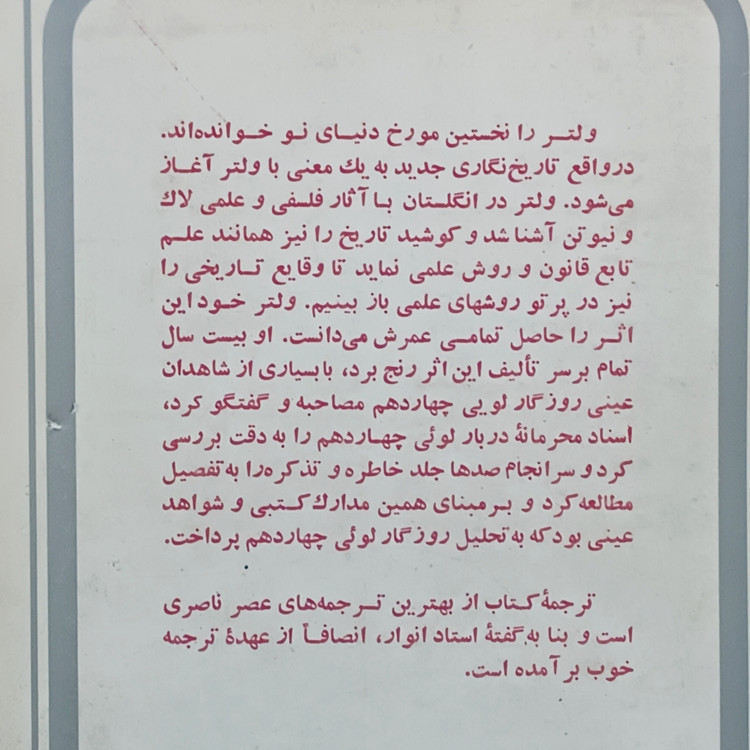 ولتر را نخستین مورخ دنیای نو خوانده‌اند.
درواقع تاریخ‌نگاری جدید به یك معنی با ولتر آغاز
می‌شود. ولتر در انگلستان با آثار فلسفی و علمی لاك
و نیوتن آشنا شد و کوشید تاریخ را نیز همانند علم
تابع قانون و روش علمی نماید تا وقایع تاریخی را
نیز در پرتو روشهای علمی باز بینیم. ولتر خود این
اثر را حاصل تمامی عمرش می‌دانست. او بیست سال
تمام برسر تألیف این اثر رنج برد، با بسیاری از شاهدان
عینی روزگار لویی چهاردهم مصاحبه و گفتگو کرد،
اسناد محرمانهٔ دربار لوئی چهاردهم را به دقت بررسی
کرد و سرانجام صدها جلد خاطره و تذکره را به تفصیل
مطالعه کرد و برمبنای همین مدارك کتبی و شواهد
عینی بود که به تحلیل روزگار لوئی چهاردهم پرداخت.
ترجمهٔ کتاب از بهترین ترجمه‌های عصر ناصری
است و بنا به گفتهٔ استاد انوار، انصافاً از عهدهٔ ترجمه
خوب برآمده است.